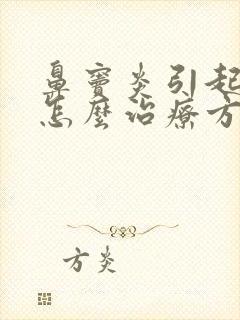 鼻窦炎引起
怎麼治療方
方炎